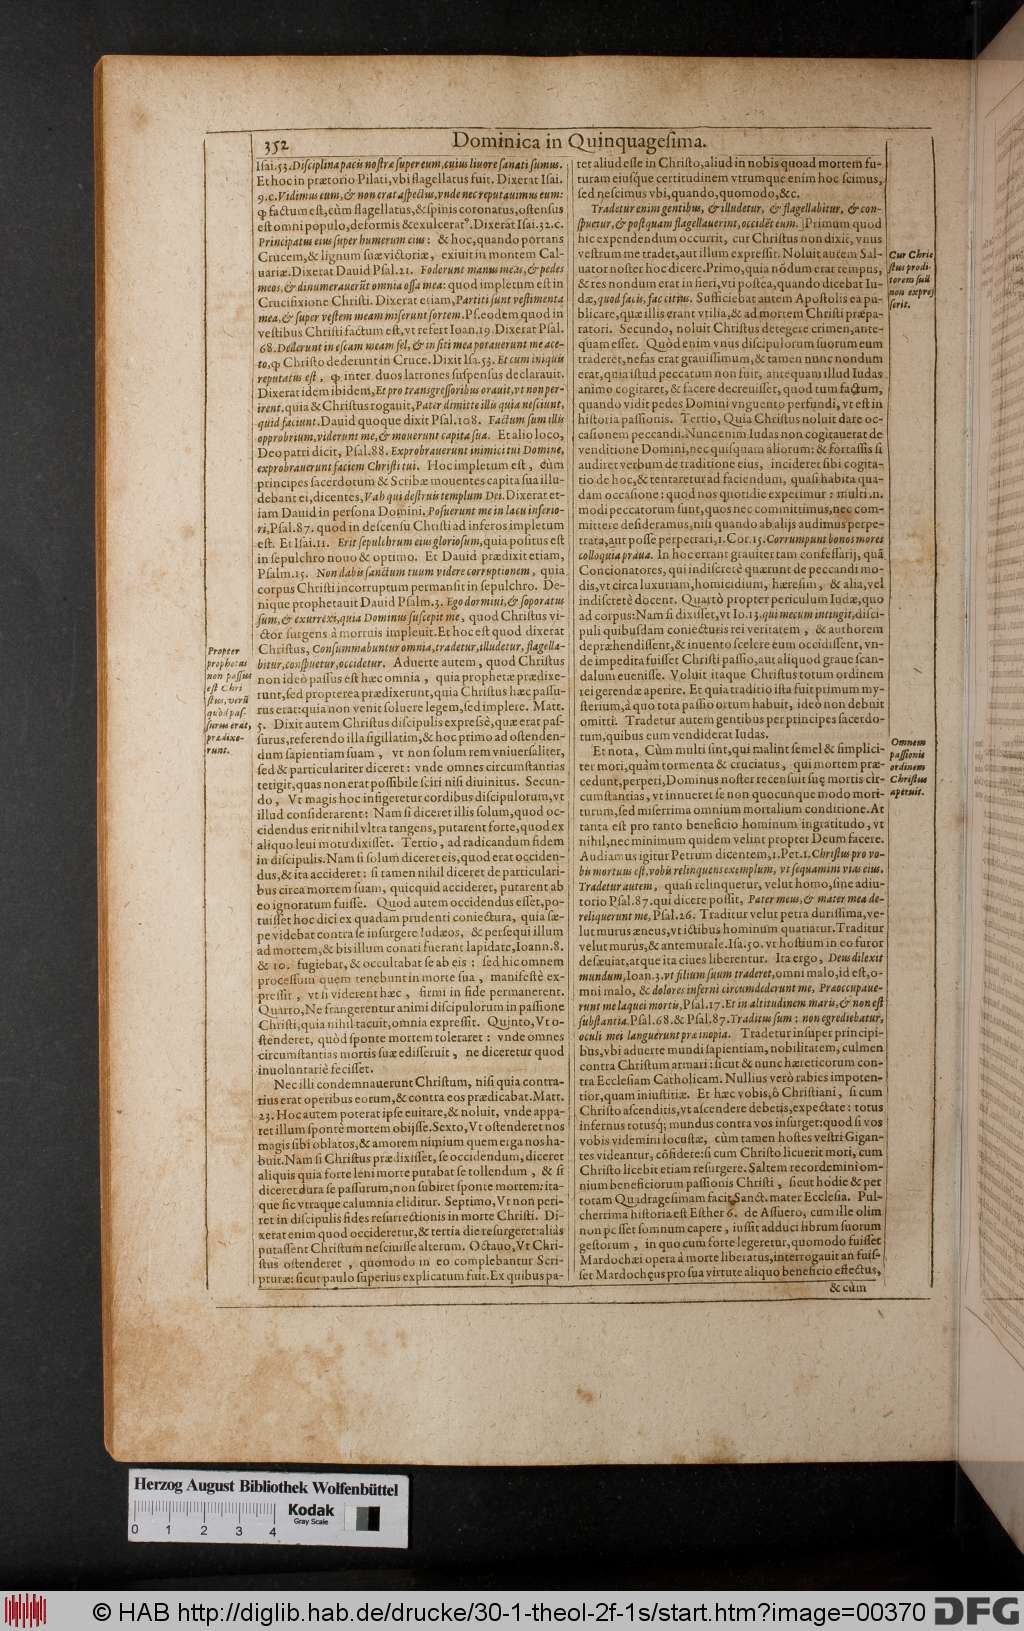 352 Dominica in Quinquageſima.
Iſai. 53. Diſciplina pacis noſtræ ſuper eum, cuius liuore ſanati ſumus.
Et hoc in prætorio Pilati, vbi flagellatus fuit. Dixerat Iſai.
9. c. Vidimus eum, & non erat aſpectus, vnde nec reputauimus eum:
ꝙ factum eſt, cùm flagellatus, & ſpinis coronatus, oſtenſus
eſt omni populo, deformis & exulceratꝰ. Dixerat Iſai. 32. c.
Principatus eius ſuper humerum eius: & hoc, quando portans
Crucem, & lignum ſuæ victoriæ, exiuit in montem Cal-
uariæ. Dixerat Dauid Pſal. 21. Foderunt manus meas, & pedes
meos, & dinumerauerũt omnia oſſa mea: quod impletum eſt in
Crucifixione Chriſti. Dixerat etiam, Partiti ſunt veſtimenta
mea, & ſuper veſtem meam miſerunt ſortem. Pſ. eodem quod in
veſtibus Chriſti factum eſt, vt refert Ioan. 19. Dixerat Pſal.
68. Dederunt in eſcam meam fel, & in ſiti mea potauerunt me ace-
to, ꝙ Chriſto dederunt in Cruce. Dixit Iſa. 53. Et cum iniquis
reputatus eſt, ꝙ inter duos latrones ſuſpenſus declarauit.
Dixerat idem ibidem, Et pro tranſgreſſoribus orauit, vt non per-
irent. quia & Chriſtus rogauit, Pater dimitte illis quia neſciunt,
quid faciunt. Dauid quoque dixit Pſal. 108. Factum ſum illis
opprobrium, viderunt me, & mouerunt capita ſua. Et alio loco,
Deo patri dicit, Pſal. 88. Exprobrauerunt inimici tui Domine,
exprobrauerunt faciem Chriſti tui. Hoc impletum eſt, cùm
principes ſacerdotum & Scribæ mouentes capita ſua illu-
debant ei, dicentes, Vah qui deſtruis templum Dei. Dixerat et-
iam Dauid in perſona Domini. Poſuerunt me in lacu inferio-
ri, Pſal. 87. quod in deſcenſu Chriſti ad inferos impletum
eſt. Et Iſai. 11. Erit ſepulchrum eius glorioſum, quia poſitus eſt
in ſepulchro nouo & optimo. Et Dauid prædixit etiam,
Pſalm. 15. Non dabis ſanctum tuum videre corruptionem, quia
corpus Chriſti incorruptum permanſit in ſepulchro. De-
nique prophetauit Dauid Pſalm. 3. Ego dormiui, & ſoporatus
ſum, & exurrexi, quia Dominus ſuſcepit me, quod Chriſtus vi-
ctor ſurgens à mortuis impleuit. Et hoc eſt quod dixerat
Chriſtus, Conſummabuntur omnia, tradetur, illudetur, flagella-
bitur, conſpuetur, occidetur. Aduerte autem, quod Chriſtus
non ideò paſſus eſt hæc omnia, quia prophetæ prædixe-
runt, ſed propterea prædixerunt, quia Chriſtus hæc paſſu-
rus erat: quia non venit ſoluere legem, ſed implere. Matt.
5. Dixit autem Chriſtus diſcipulis expreſsè, quæ erat paſ-
ſurus, referendo illa ſigillatim, & hoc primo ad oſtenden-
dum ſapientiam ſuam, vt non ſolum rem vniuerſaliter,
ſed & particulariter diceret: vnde omnes circumſtantias
tetigit, quas non erat poſſibile ſciri niſi diuinitus. Secun-
do, Vt magis hoc infigeretur cordibus diſcipulorum, vt
illud conſiderarent: Nam ſi diceret illis ſolum, quod oc-
cidendus erit nihil vltra tangens, putarent forte, quod ex
aliquo leui motu dixiſſet. Tertio, ad radicandum fidem
in diſcipulis. Nam ſi ſolum diceret eis, quod erat occiden-
dus, & ita accideret: ſi tamen nihil diceret de particulari-
bus circa mortem ſuam, quicquid accideret, putarent ab
eo ignoratum fuiſſe. Quod autem occidendus eſſet, po-
tuiſſet hoc dici ex quadam prudenti coniectura, quia ſæ-
pe videbat contra ſe inſurgere Iudæos, & perſequi illum
ad mortem, & bis illum conati fuerant lapidare, Ioann. 8.
& 10. fugiebat, & occultabat ſe ab eis: ſed hic omnem
proceſſum quem tenebunt in morte ſua, manifeſtè ex-
preſſit, vt ſi viderent hæc, firmi in fide permanerent.
Quarto, Ne frangerentur animi diſcipulorum in paſſione
Chriſti, quia nihil tacuit, omnia expreſſit. Quinto, Vt o-
ſtenderet, quòd ſponte mortem toleraret: vnde omnes
circumſtantias mortis ſuæ edifferuit, ne diceretur quod
inuoluntariè feciſſet.
Nec illi condemnauerunt Chriſtum, niſi quia contra-
rius erat operibus eorum, & contra eos prædicabat. Matt.
23. Hoc autem poterat ipſe euitare, & noluit, vnde appa-
ret illum ſponte mortem obijſſe. Sexto, Vt oſtenderet nos
magis ſibi oblatos, & amorem nimium quem erga nos ha-
buit. Nam ſi Chriſtus prædixiſſet, ſe occidendum, diceret
aliquis quia forte leni morte putabat ſe tollendum, & ſi
diceret dura ſe paſſurum, non ſubiret ſponte mortem: ita-
que ſic vtraque calumnia eliditur. Septimo, Vt non peri-
ret in diſcipulis fides reſurrectionis in morte Chriſti. Di-
xerat enim quod occideretur, & tertia die reſurgeret: aliàs
putaſſent Chriſtum neſciuiſſe alterum. Octauo, Vt Chri-
ſtus oſtenderet, quomodo in eo complebantur Scri-
pturæ: ſicut paulo ſuperius explicatum fuit. Ex quibus pa-
Propter
prophetas
non paſſus
eſt Chri
ſtus, verũ
quòd paſ-
ſurus erat,
prædixe-
runt.
tet aliud eſſe in Chriſto, aliud in nobis quoad mortem fu-
turam eiuſque certitudinem vtrumque enim hoc ſcimus,
ſed neſcimus vbi, quando, quomodo, &c.
Tradetur enim gentibus, & illudetur, & flagellabitur, & con-
ſpuetur, & poſtquam flagellauerint, occidẽt eum. Primum quod
hic expendendum occurrit, cur Chriſtus non dixit, vnus
veſtrum me tradet, aut illum expreſſit. Noluit autem Sal-
uator noſter hoc dicere. Primo, quia nõdum erat tempus,
& res nondum erat in fieri, vti poſtea, quando dicebat Iu-
dæ, quod facis, fac citius. Sufficiebat autem Apoſtolis ea pu-
blicare, quæ illis erant vtilia, & ad mortem Chriſti præpa-
ratori. Secundo, noluit Chriſtus detegere crimen, ante-
quam eſſet. Quòd enim vnus diſcipulorum ſuorum eum
traderet, nefas erat grauiſſimum, & tamen nunc nondum
erat, quia iſtud peccatum non fuit, antequam illud Iudas
animo cogitaret, & facere decreuiſſet, quod tum factum,
quando vidit pedes Domini vnguento perfundi, vt eſt in
hiſtoria paſſionis. Tertio, Quia Chriſtus noluit dare oc-
caſionem peccandi. Nunc enim Iudas non cogitauerat de
venditione Domini, nec quiſquam aliorum: & fortaſſis ſi
audiret verbum de traditione eius, incideret ſibi cogita-
tio de hoc, & tentaretur ad faciendum, quaſi habita qua-
dam occaſione: quod nos quotidie experimur: multi .n.
modi peccatorum ſunt, quos nec committimus, nec com-
mittere deſideramus, niſi quando ab alijs audimus perpe-
trata, aut poſſe perpetrari, 1. Cor. 15. Corrumpunt bonos mores
colloquia praua. In hoc errant grauiter tam confeſſarij, quã
Concionatores, qui indiſcretè quærunt de peccandi mo-
dis, vt circa luxuriam, homicidium, hæreſim, & alia, vel
indiſcretè docent. Quartò propter periculum Iudæ, quo
ad corpus: Nam ſi dixiſſet, vt Io. 13. qui mecum intingit, diſci-
puli quibuſdam coniecturis rei veritatem, & authorem
depræhendiſſent, & inuento ſcelere eum occidiſſent, vn-
de impedita fuiſſet Chriſti paſſio, aut aliquod graue ſcan-
dalum eueniſſe. Voluit itaque Chriſtus totum ordinem
rei gerendæ aperire. Et quia traditio iſta fuit primum my-
ſterium, à quo tota paſſio ortum habuit, ideò non debuit
omitti. Tradetur autem gentibus per principes ſacerdo-
tum, quibus eum vendiderat Iudas.
Et nota, Cùm multi ſint, qui malint ſemel & ſimplici-
ter mori, quàm tormenta & cruciatus, qui mortem præ-
cedunt, perpeti, Dominus noſter recenſuit ſuę mortis cir-
cumſtantias, vt innueret ſe non quocunque modo mori-
turum, ſed miſerrima omnium mortalium conditione. At
tanta eſt pro tanto beneficio hominum ingratitudo, vt
nihil, nec minimum quidem velint propter Deum facere.
Audiamus igitur Petrum dicentem, 1. Pet. 1. Chriſtus pro vo-
bis mortuus eſt, vobis relinquens exemplum, vt ſequamini vias eius.
Tradetur autem, quaſi relinquetur, velut homo, ſine adiu-
torio Pſal. 87. qui dicere poſſit, Pater meus, & mater mea de-
reliquerunt me, Pſal. 26. Traditur velut petra duriſſima, ve-
lut murus æneus, vt ictibus hominum quatiatur. Traditur
velut murus, & antemurale. Iſa. 50. vt hoſtium in eo furor
deſæuiat, atque ita ciues liberentur. Ita ergo, Deus dilexit
mundum, Ioan. 3. vt filium ſuum traderet, omni malo, id eſt, o-
mni malo, & dolores inferni circumdederunt me, Præoccupaue-
runt me laquei mortis, Pſal. 17. Et in altitudinem maris, & non eſt
ſubſtantia. Pſal. 68. & Pſal. 87. Traditus ſum: non egrediebatur,
oculi mei languerunt præ inopia. Tradetur inſuper principi-
bus, vbi aduerte mundi ſapientiam, nobilitatem, culmen
contra Chriſtum armari: ſicut & nunc hæreticorum con-
tra Eccleſiam Catholicam. Nullius verò rabies impoten-
tior, quam iniuſtitiæ. Et hæc vobis, ô Chriſtiani, ſi cum
Chriſto aſcenditis, vt aſcendere debetis, expectate: totus
infernus totusq́; mundus contra vos inſurget: quod ſi vos
vobis videmini locuſtæ, cùm tamen hoſtes veſtri Gigan-
tes videantur, cõfidete: ſi cum Chriſto licuerit mori, cum
Chriſto licebit etiam reſurgere. Saltem recordemini om-
nium beneficiorum paſſionis Chriſti, ſicut hodie & per
totam Quadrageſimam facit Sanct. mater Eccleſia. Pul-
cherrima hiſtoria eſt Eſther 6. de Aſſuero, cum ille olim
non poſſet ſomnum capere, iuſſit adduci librum ſuorum
geſtorum, in quo cum forte legeretur, quomodo fuiſſet
Mardochæi opera à morte liberatus, interrogauit an fuiſ-
ſet Mardochęus pro ſua virtute aliquo beneficio effectus,
& cùm
Cur Chri
ſtus prodi-
torem ſuũ
non expreſ
ſerit.
Omnem
paſſionis
ordinem
Chriſtus
aperuit.
Herzog August Bibliothek Wolfenbüttel
0 1 2 3 4
Kodak
Gray Scale
© HAB http://diglib.hab.de/drucke/30-1-theol-2f-1s/start.htm?image=00370 DFG